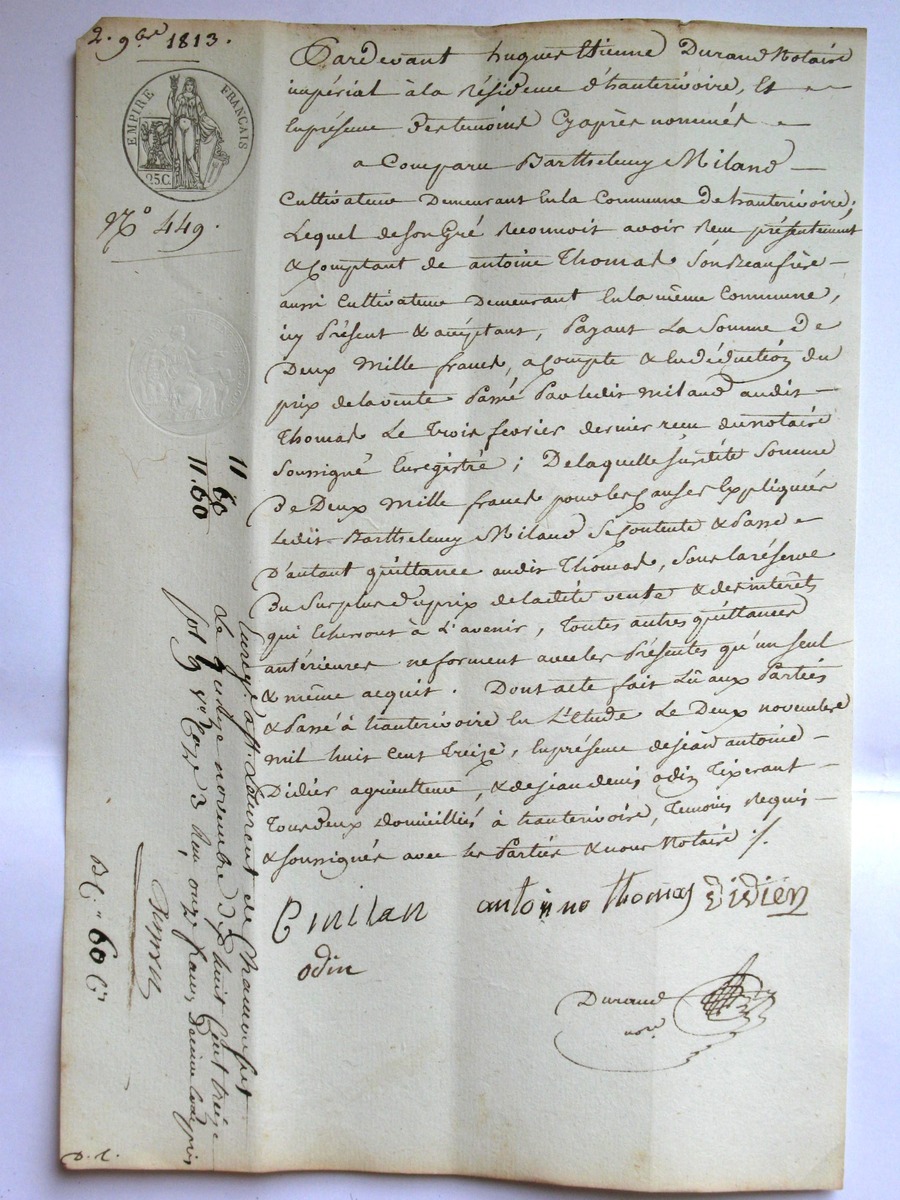 2. 9bre 1813.
EMPIRE FRANÇAIS
25 C.
No 449.
Pardevant hugues Etienne Durand Notaire
impérial à la résidence d'hauterivoire, Et
En présence des temoins Cy après nommés
a Comparu Barthelemy Miland
Cultivateur Demeurant En la Commune de hauterivoire;
Lequel de son Gré reconnoit avoir reçu présentement
& Comptant de antoine Thomas Son Beaufrère
aussi Cultivateur Demeurant En la même Commune,
icy Présent & acceptant, Payant La Somme de
Deux Mille francs, acompte & En déduction du
prix de la vente Passé Par ledit miland audit
Thomas Le Trois fevrier dernier reçu du notaire
Soussigné Enregistré; De laquelle susdite Somme
De Deux Mille francs pour les Causes Expliquées
Ledit Barthelemy Miland Se Contente & Passe
D'autant quittance audit Thomas, Sous la réserve
Du Surplus du prix de ladite vente & des interets
qui Echerront à L'avenir, Toutes autres quittances
antérieures ne forment avec les Présentes qu'un seul
& même acquit. Dont acte fait Lû aux Parties
& Passé à hauterivoire En L'Etude Le Deux novembre
mil huit Cent Treize, En présence de jean antoine
Didier agriculteur, & de jean denis odin Tixerant
Tous deux Domiciliés à hauterivoire, Temoins Requis
& soussignés avec les Parties & nous Notaire ./.
B milan antoinne thomas Didier
odin
Durand
nore
11 60
11.60
Enreg. à St. Laurent de Chamousset
Le quinze novembre dix huit Cent treize
fol Vo Case 3 Reçu onze francs Decime Compris
60 C
D. C.